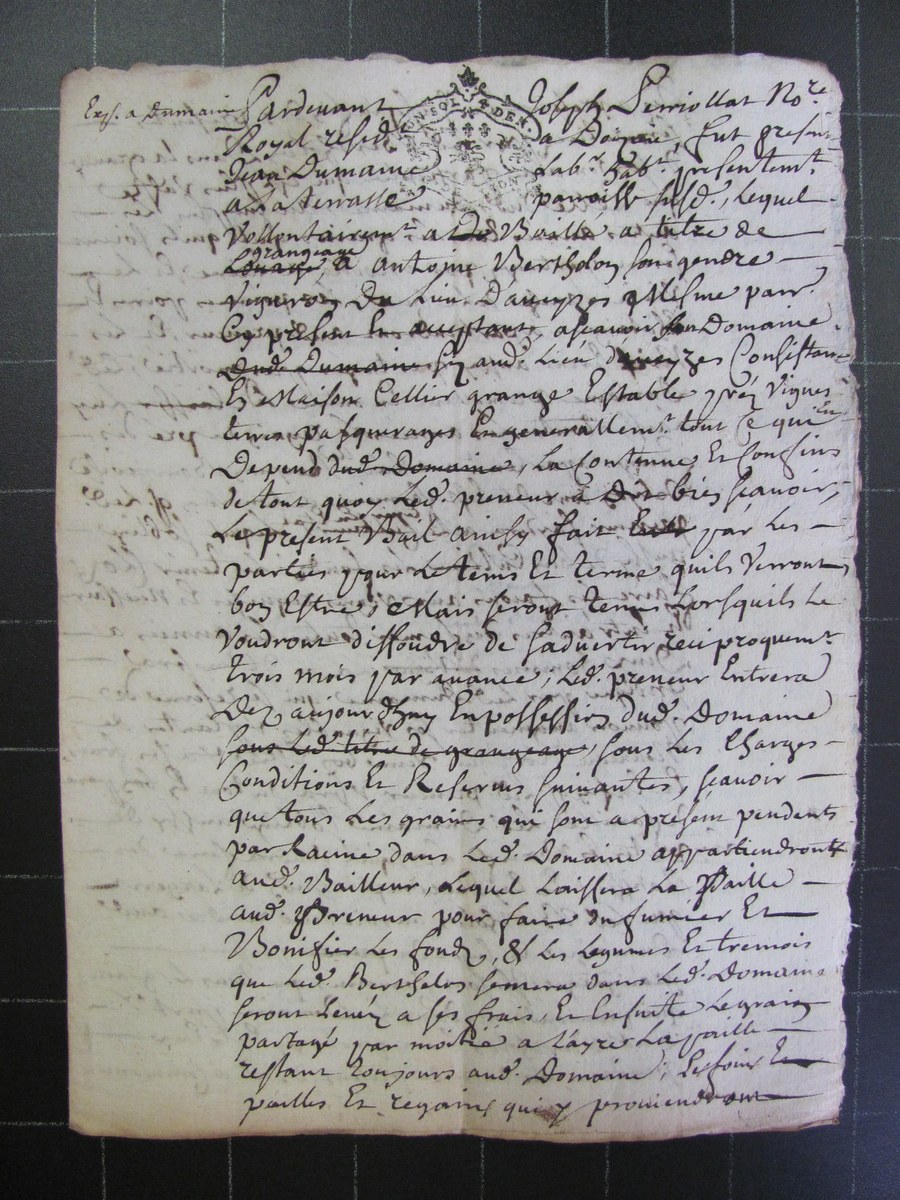 Exp. a Dumaine
Pardevant Joseph Perriollat No.re
Royal resid.t a Doizieu, fut present
Jean Dumaine fab.r hab.t presentem.t
a La terrasse parroisse susd., Lequel
Vollontairem.t a Baillé a titre de
grangeage
Louage, a antoine Bertholon son gendre
Vigneron Du Lieu D'aveyzes Mesme parr.
Cy present Et acceptant, ascavoir son Domaine
Dud. Dumaine Sis aud. Lieu d'aveyzes Consistant
En Maison Cellier grange Estable prés Vignes
terres pasquerages En generallem.t tout Ce qui En
Depend dud. Domaine, La Contenue Et Confins
de tout quoy Led. preneur a Dit bien scavoir,
Le present Bail ainsy fait par Les
parties pour Le tems Et terme quils Verront
bon Estre, Mais seront tenus Lorsquils Le
Voudront dissoudre de sadvertir reciproquem.t
trois mois par avance, Led. preneur Entrera
Dez aujourdhuy En possession dud. Domaine
sous Led. titre de grangeage, sous Les Charges
Conditions Et Reserves suivantes, scavoir
que tous Les grains qui sont a present pendents
par Racine dans Led. Domaine appartiendront
aud. Bailleur, Lequel Laissera La Paille
aud. Preneur pour faire du fumier Et
Bonifier Les fonds, & Les Legumes Et tremois
que Led. Bertholon semera dans Led. Domaine
seront Levés a ses frais, Et Ensuite Le grain
partagé par moitié a L'ayre La paille
restant toujours aud. Domaine, Les foins Et
pailles Et regains qui y proviendront